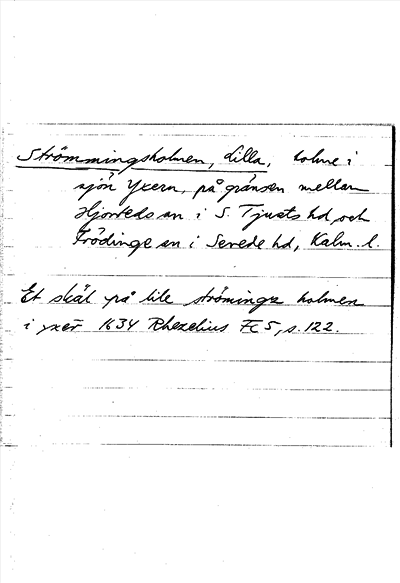 Strömmingsholmen, Lilla, holme i
sjön Yxern, på gränsen mellan
Hjorteds sn i S. Tjusts hd, och
Frödinge sn i Sevede hd, Kalm. l.
Et skäl på lile strömings holmen
i yxer̄ 1634 Rhezelius Fc 5, s. 122.